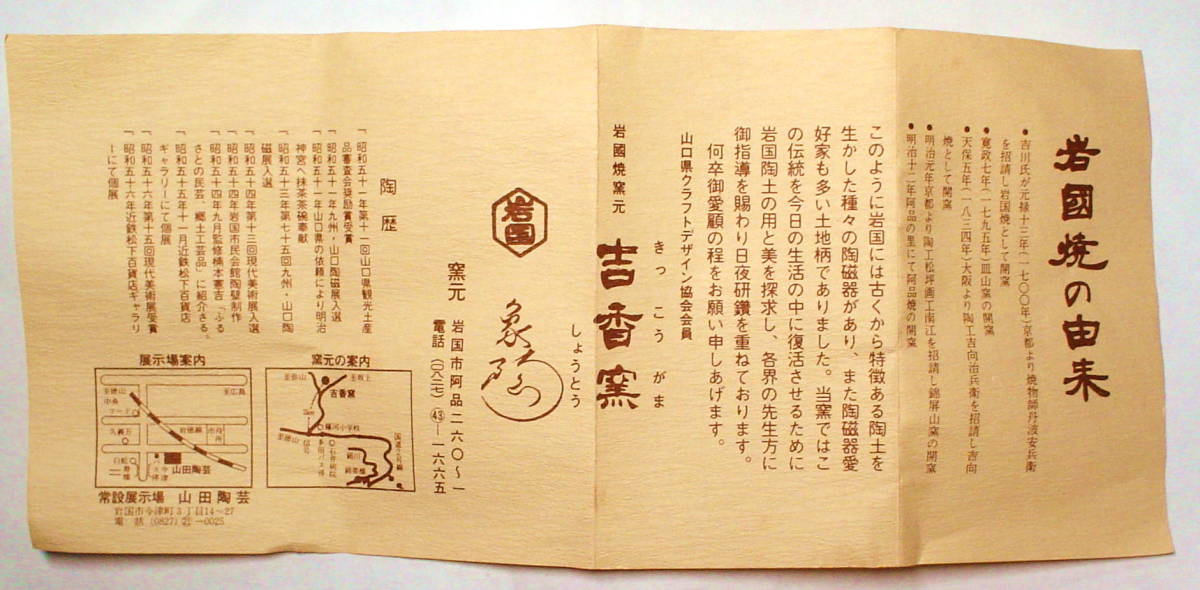 岩國焼の由来
●吉川氏が元禄十三年（一七〇〇年）京都より焼物師丹波安兵衛
を招請し岩国焼として開窯
●寛政七年（一七九五年）皿山窯の開窯
●天保五年（一八三四年）大阪より陶工吉向治兵衛を招請し吉向
焼として開窯
●明治元年京都より陶工松坪画工南江を招請し錦屏山窯の開窯
●明治十二年阿品の里にて阿品焼の開窯
このように岩国には古くから特徴ある陶土を
生かした種々の陶磁器があり、また陶磁器愛
好家も多い土地柄でありました。当窯ではこ
の伝統を今日の生活の中に復活させるために
岩国陶土の用と美を探求し、各界の先生方に
御指導を賜わり日夜研鑽を重ねております。
何卒御愛顧の程をお願い申しあげます。
山口県クラフトデザイン協会会員
きっこうがま
吉香窯
岩國焼窯元
しょうとう
岩国
窯元 岩国市阿品二六〇〜一
電話（〇八二七）㊸一一六六五
陶歴
「昭和五十一年第十一回山口県観光土産
品審査会奨励賞受賞
「昭和五十一年九州・山口陶磁展入選
「昭和五十一年山口県の依頼により明治
神宮へ抹茶茶碗奉献
「昭和五十三年第七十五回九州・山口陶
磁展入選
「昭和五十四年第十三回現代美術展入選
「昭和五十四年岩国市民会館陶壁制作
「昭和五十四年九月監修楠本憲吉「ふる
さとの民芸、郷土工芸品」に紹介さる。
「昭和五十五年十一月近鉄松下百貨店
ギャラリーにて個展
「昭和五十六年第十五回現代美術展受賞
「昭和五十六年近鉄松下百貨店ギャラリ
ーにて個展
窯元の案内
至弥山
至牧上
吉香窯
2km
藤河小学校
至徳山
信号
多田バス停
国道2号線
錦川
錦帯橋
展示場案内
至徳山
至広島
中央
フード
久義万
岩徳線
市役所
山田陶芸
常設展示場 山田陶芸
岩国市今津町3丁目14〜27
電 話 (0827) ㉑ー0025